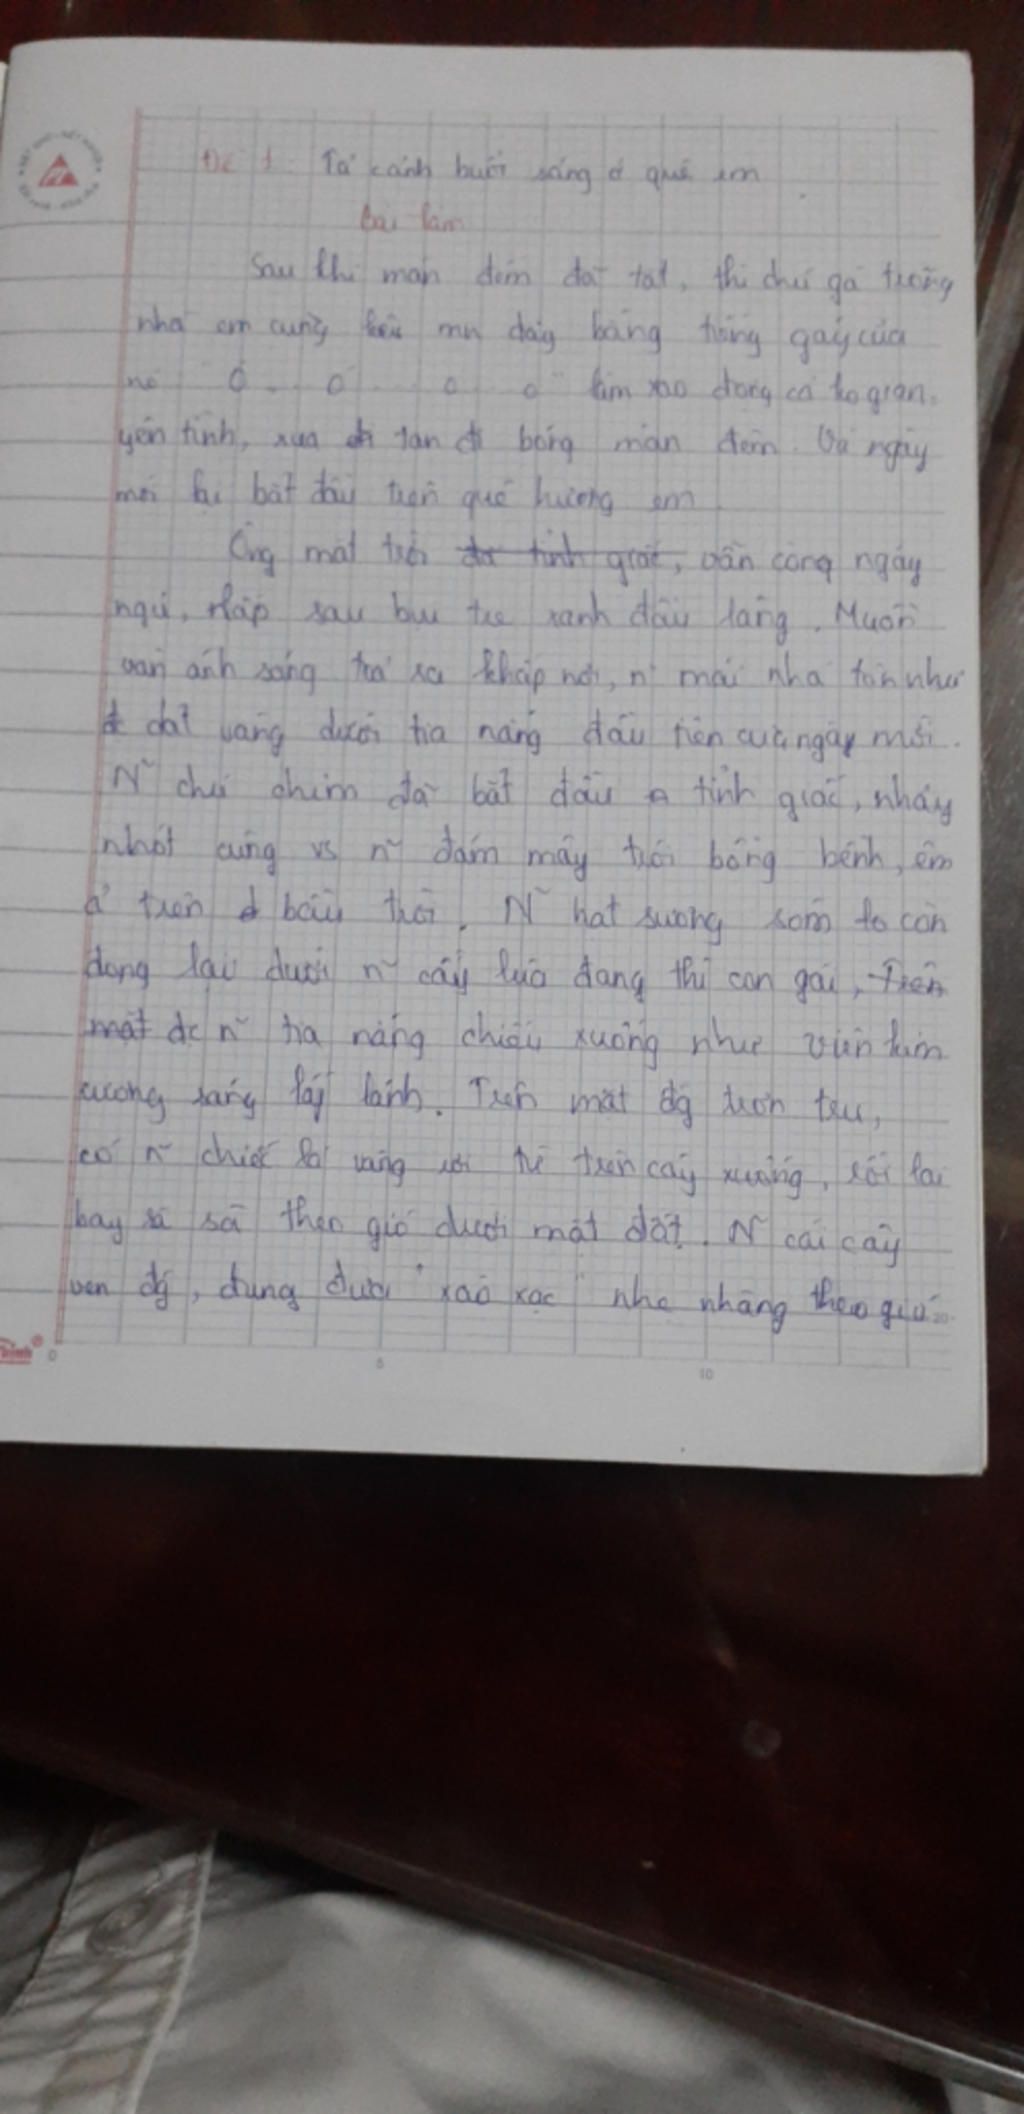 Đề 1: Tả cảnh buổi sáng ở quê em
Bài làm
Sau khi màn đêm đã tắt, thì chú gà trống
nhà em cũng kêu mn dậy bằng tiếng gáy của
nó Ó... ó... o... o" làm xao động cả ko gian
yên tĩnh, xua tan đi bóng màn đêm. Và ngày
mới lại bắt đầu trên quê hương em.
Ông mặt trời đã tỉnh giấc, vẫn còng ngáy
ngủ, nấp sau bụi tre xanh đầu làng. Muôn
vàn ánh sáng toả ra khắp nơi, n~ mái nhà tôn như
dát vàng dưới tia nắng đầu tiên của ngày mới.
N~ chú chim đã bắt đầu tỉnh giấc, nhảy
nhót cùng vs n~ đám mây trôi bồng bềnh, êm
ả trên bầu trời. N~ hạt sương sớm to còn
đọng lại dưới n~ cây lúa đang thì con gái, Trên
mặt đc n~ tia nắng chiếu xuống như viên kim
cương sáng lấp lánh. Trên mặt đg trơn tru,
có n~ chiếc lá vàng rơi từ trên cây xuống, rồi lại
bay là sà theo gió dưới mặt đất. N~ cái cây
ven đg, đung đưa "xào xạc" nhẹ nhàng theo gió.
0 5 10
20